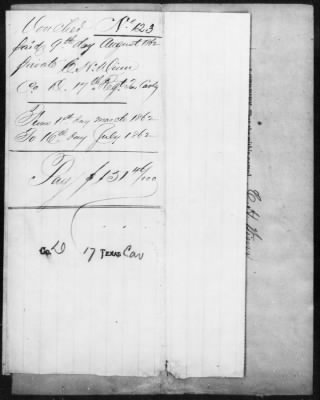 Voucher No 123
paid 9th day August 1862
private
Co D. 17th Regt Tex Cavly
From 1st day march 1862
To 16th day July 1862
Pay $131 46/100
Co. D 17 TEXAS Cav